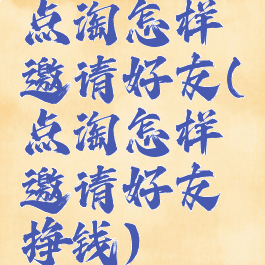 点淘怎样
邀请好友(
点淘怎样
邀请好友
挣钱)